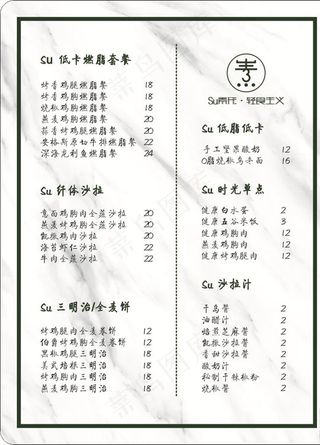 Su 低卡燃脂套餐
烤香鸡腿燃脂餐 18
烤香鸡胸燃脂餐 18
烧椒鸡胸燃脂餐 18
燕麦鸡胸燃脂餐 20
蒜香烤鸡腿燃脂餐 20
安格斯原切牛排燃脂餐 22
深海龙利鱼燃脂餐 24
Su 纤体沙拉
意面鸡胸肉全蔬沙拉 20
燕麦烤鸡胸全蔬沙拉 20
凯撒鸡肉沙拉 22
海苔虾仁沙拉 22
牛肉全蔬沙拉 22
Su 三明治/全麦卷饼
烤鸡腿肉全麦卷饼 12
伯爵烤鸡胸全麦卷饼 12
黑椒鸡腿三明治 18
美式培根三明治 18
烤鸡胸肉三明治 18
燕麦鸡胸三明治 18
素
Su素氏·轻食主义
Su 低脂低卡
手工坚果酸奶 12
0脂烧椒乌冬面 16
Su 时光单点
健康白水蛋 2
健康五谷米饭 3
健康鸡胸肉 12
燕麦鸡胸肉 12
健康烤鸡腿肉 12
Su 沙拉汁
千岛酱 2
油醋汁 2
焙煎芝麻酱 2
凯撒沙拉酱 2
香甜沙拉酱 2
酸奶汁 2
秘制干辣椒粉 2
烧椒酱 2